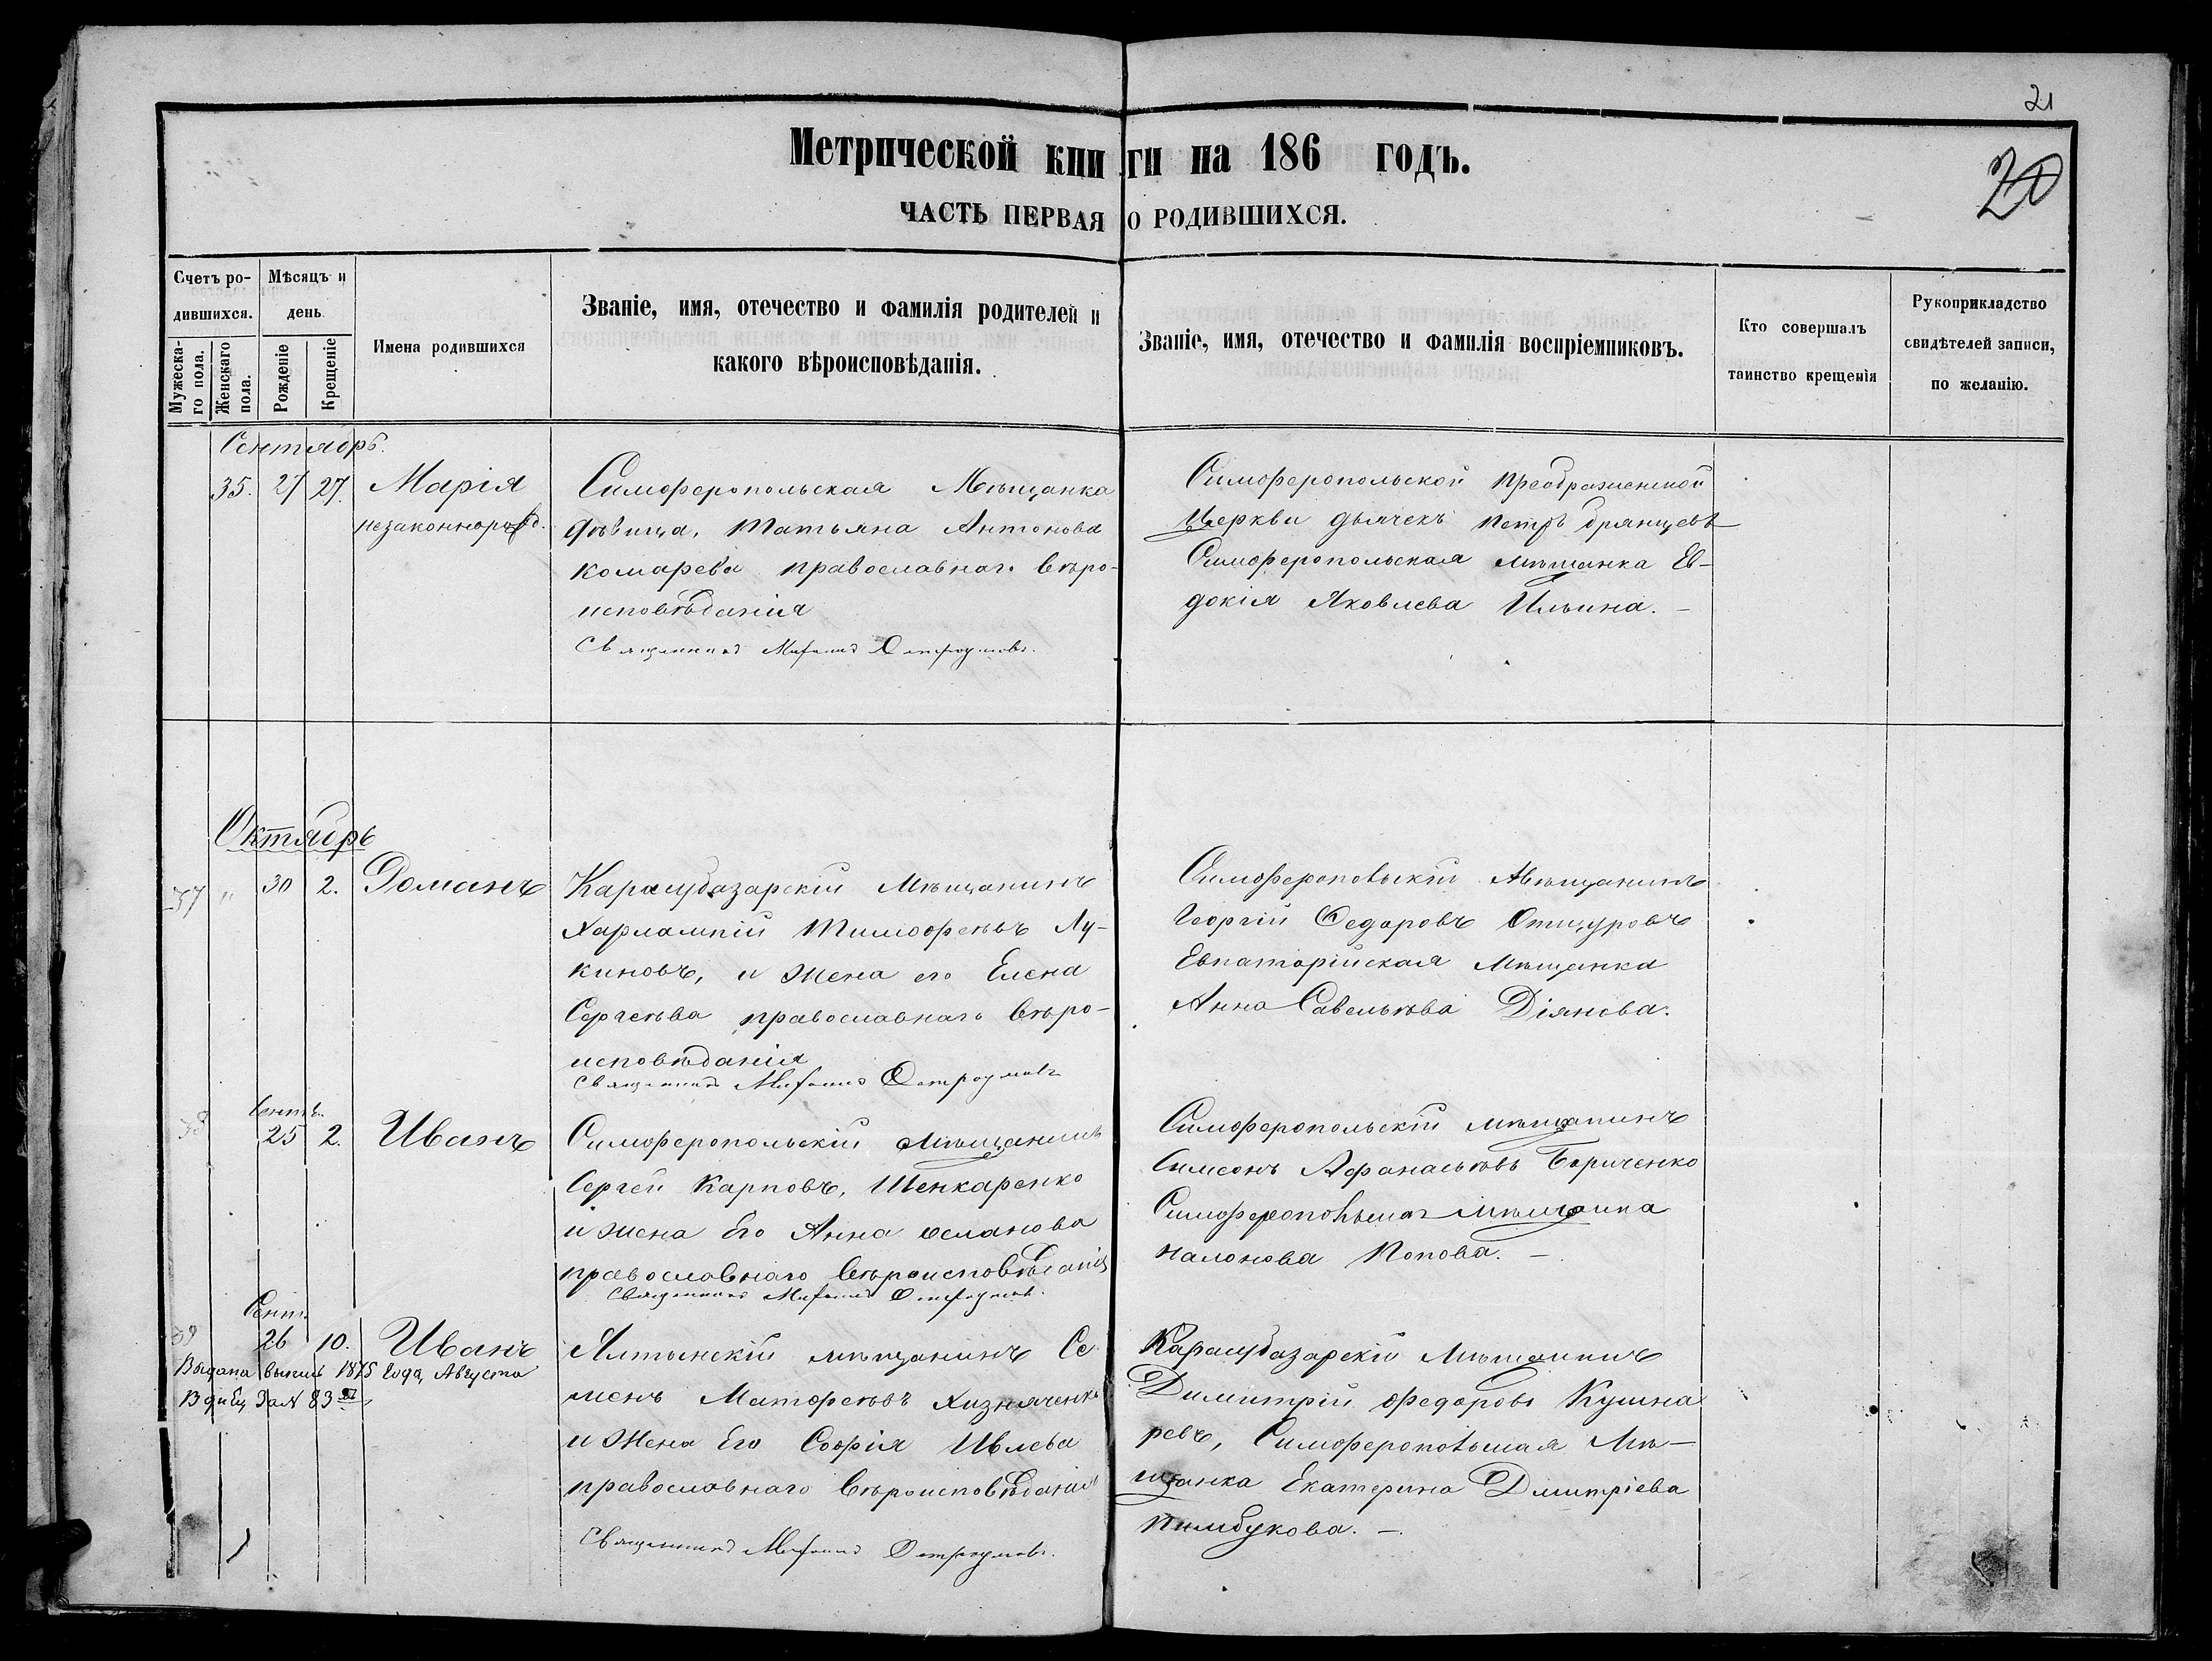 21
20
Метрической книги на 186 годъ.
ЧАСТЬ ПЕРВАЯ О РОДИВШИХСЯ.
Счетъ ро-
дившихся.
Мужеска-
го пола.
Женскаго
пола.
Мѣсяцъ и
день
Рожденіе
Крещеніе
Имена родившихся
Званіе, имя, отечество и фамилія родителей и
какого вѣроисповѣданія.
Званіе, имя, отечество и фамилія воспріемниковъ.
Кто совершалъ
таинство крещенія
Рукоприкладство
свидѣтелей записи,
по желанію.
Сентябрь.
35. 27 27. Марія
незаконнорожд.
Симферопольская Мѣщанка
дѣвица, Татьяна Антонова
Комарева православнаго вѣро-
исповѣданія
Священникъ
Симферопольской Преображенской
Церкви дьячекъ Петръ Брянцевъ
Симферопольская мѣщанка Ев-
докія Яковлева Ильина. —
Октябрь
37 " 30 2. Романъ
Карасубазарскій Мѣщанинъ
Харлампій Тимофеевъ Лу-
киновъ, и Жена его Елена
Сергеева православнаго вѣро-
исповѣданія
Священникъ
Симферопольскій Мѣщанинъ
Георгій Федоровъ
Евпаторійская Мѣщанка
Анна Савельева Діянова.
38 Сент. 25 2. Иванъ
Симферопольскій Мѣщанинъ
Сергей Карповъ, Шенкаренко
и жена Его Анна
православнаго вѣроисповѣданія
Священникъ
Симферопольскій мѣщанинъ
Симеонъ Афанасьевъ Бориченко
Симферопольская мѣщанка
Попова. —
39 Сент. 26 10. Иванъ
Выдана выпись 1875 Года, Августа
За № 83
Ялтынскій мѣщанинъ Се-
менъ Матфеевъ
и Жена Его Софія Ивлева
православнаго вѣроисповѣданія
Священникъ
Карасубазарскій Мѣщанинъ
Димитрій Федоровъ Кушна
ревъ, Симферопольская Мѣ—
щанка Екатерина Дмитріева